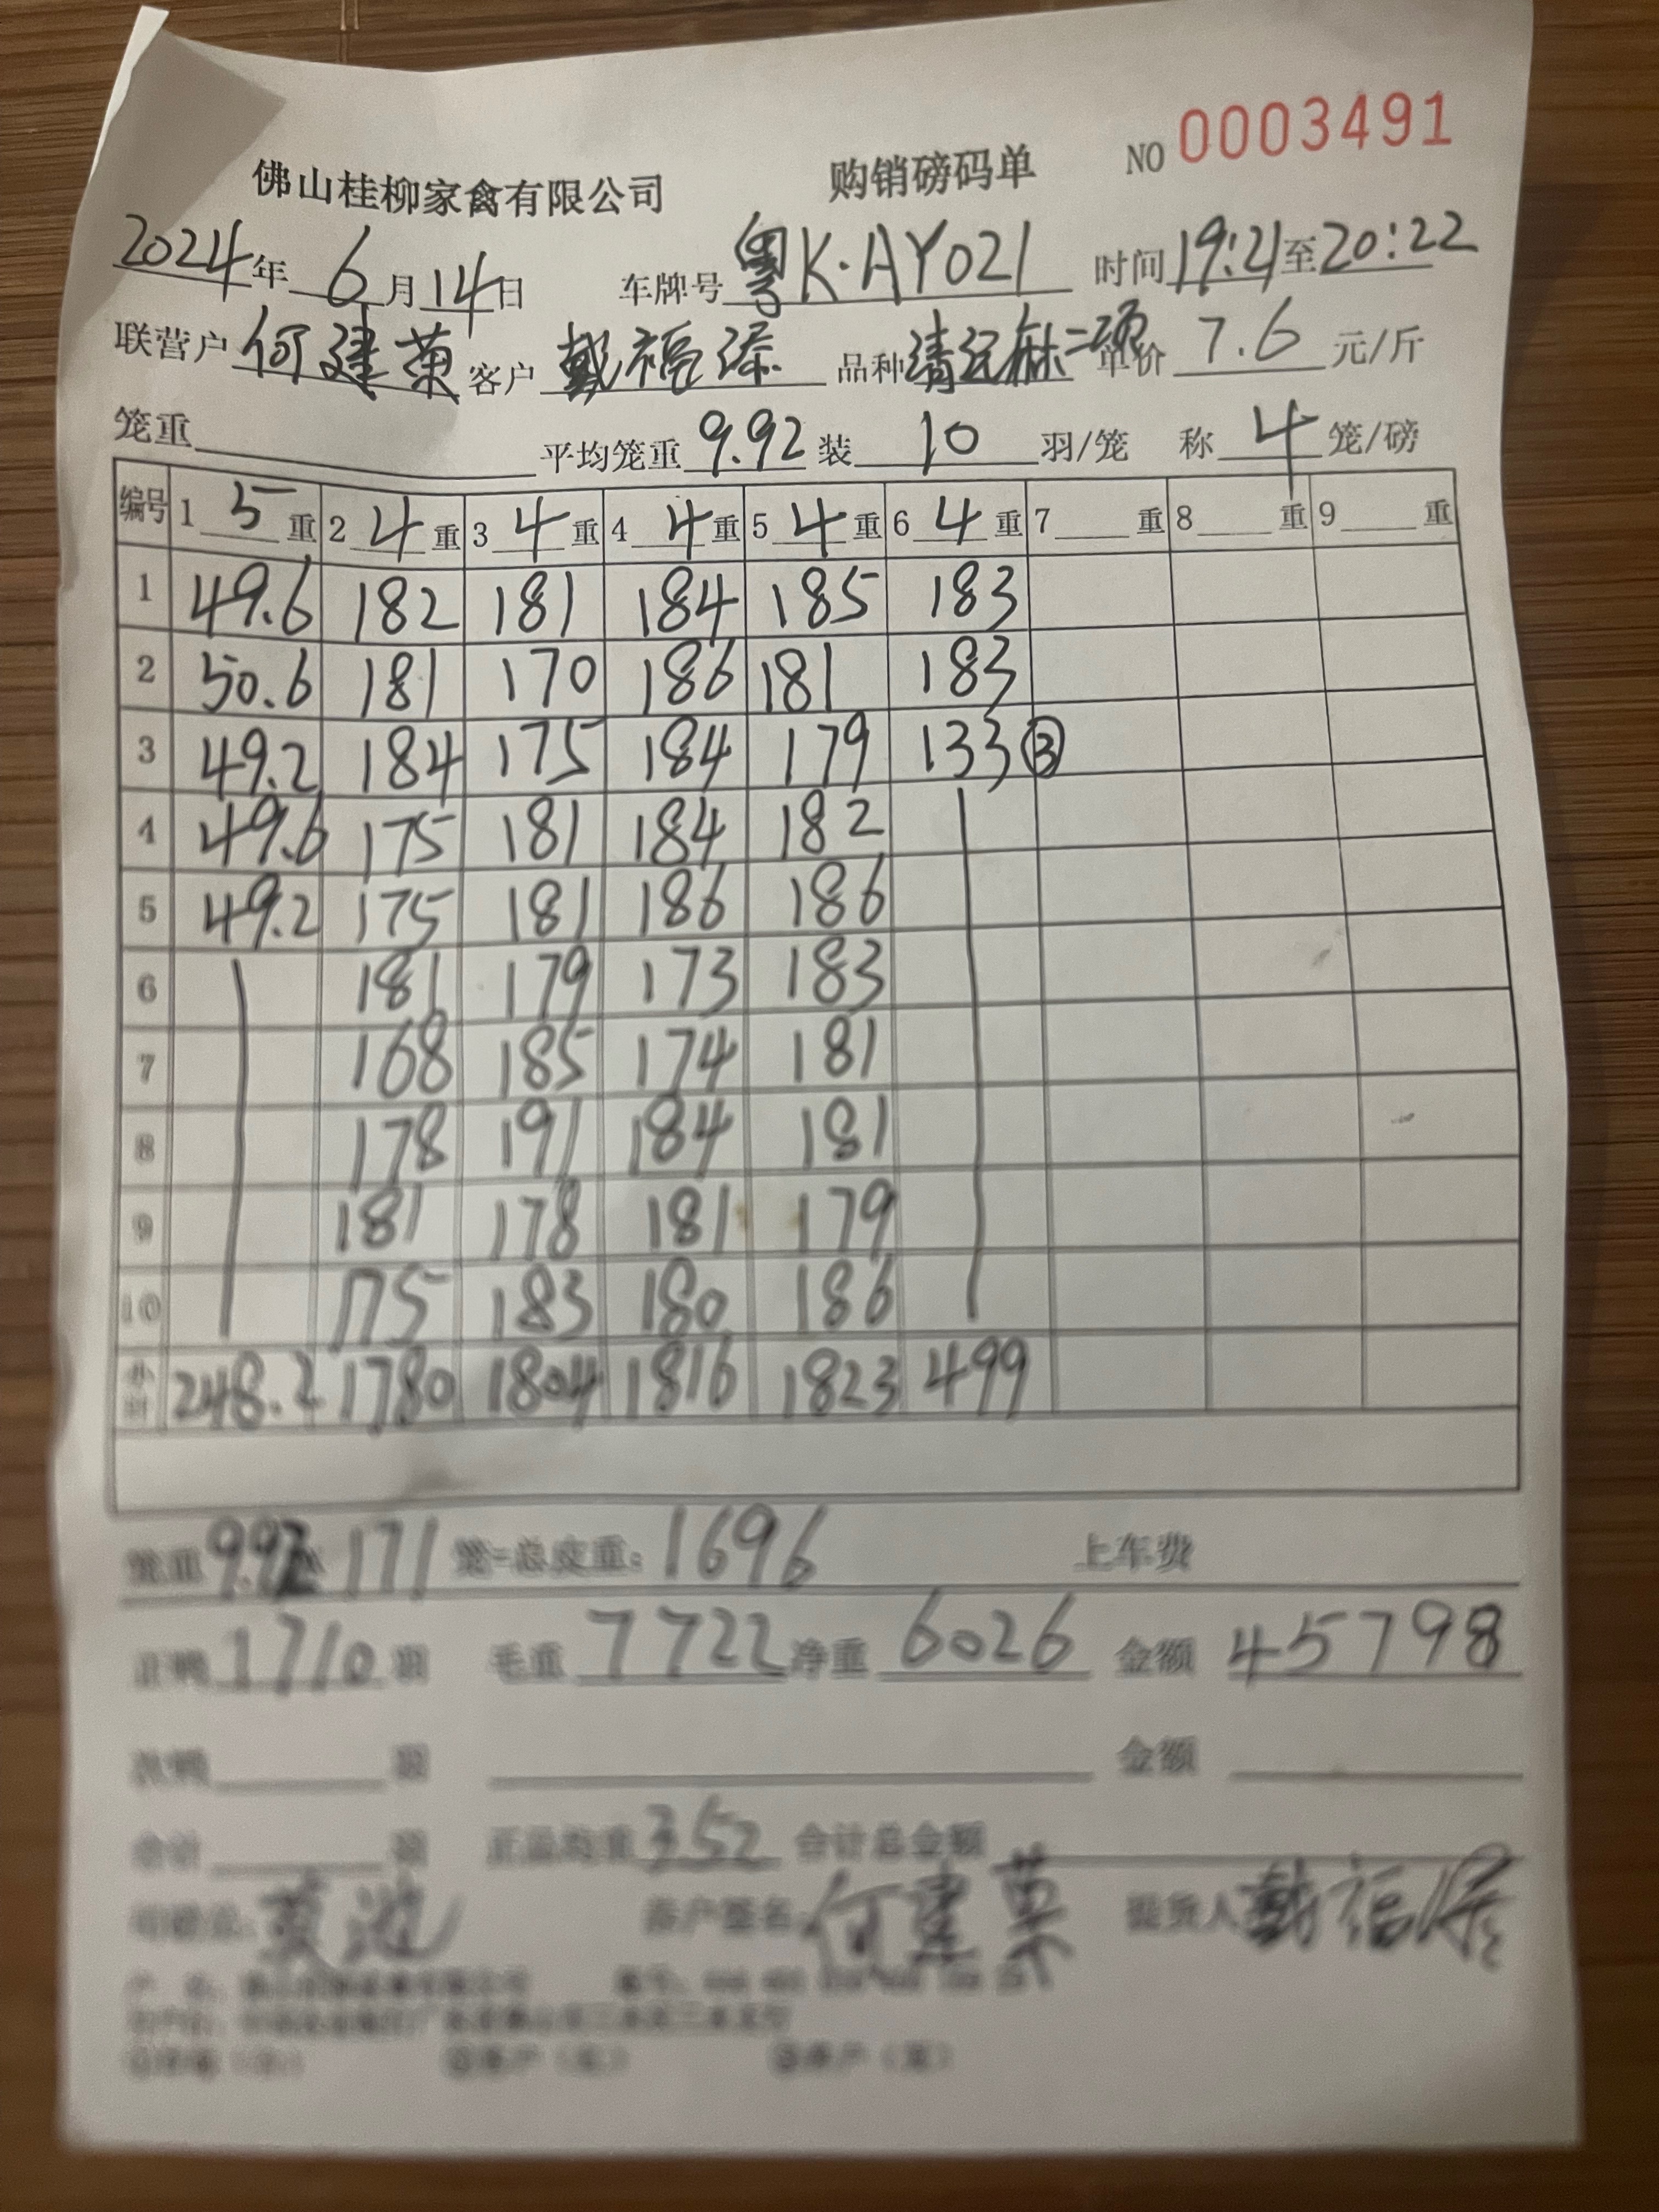 NO 0003491
佛山桂柳家禽有限公司 购销磅码单
2024年 6月14日 车牌号 粤K·AY021 时间19:21至20:22
联营户 何建荣 客户 戴福添 品种 清远麻二项 单价 7.6 元/斤
笼重 平均笼重 9.92 装 10 羽/笼 称 4 笼/磅
编号 1 5 重 2 4 重 3 4 重 4 4 重 5 4 重 6 4 重 7 重 8 重 9 重
1 49.6 182 181 184 185 183
2 50.6 181 170 186 181 183
3 49.2 184 175 184 179 133 ③
4 49.6 175 181 184 182
5 49.2 175 181 186 186
6 181 179 173 183
7 168 185 174 181
8 178 191 184 181
9 181 178 181 179
10 175 183 180 186
小计 248.2 1780 1804 1816 1823 499
笼重 9.92 171 笼=总皮重: 1696 上车费
正鸭 1710 羽 毛重 7722 净重 6026 金额 45798
次鸭 羽 金额
合计 羽 正品均重 3.52 合计总金额
何建荣 提货人 戴福添